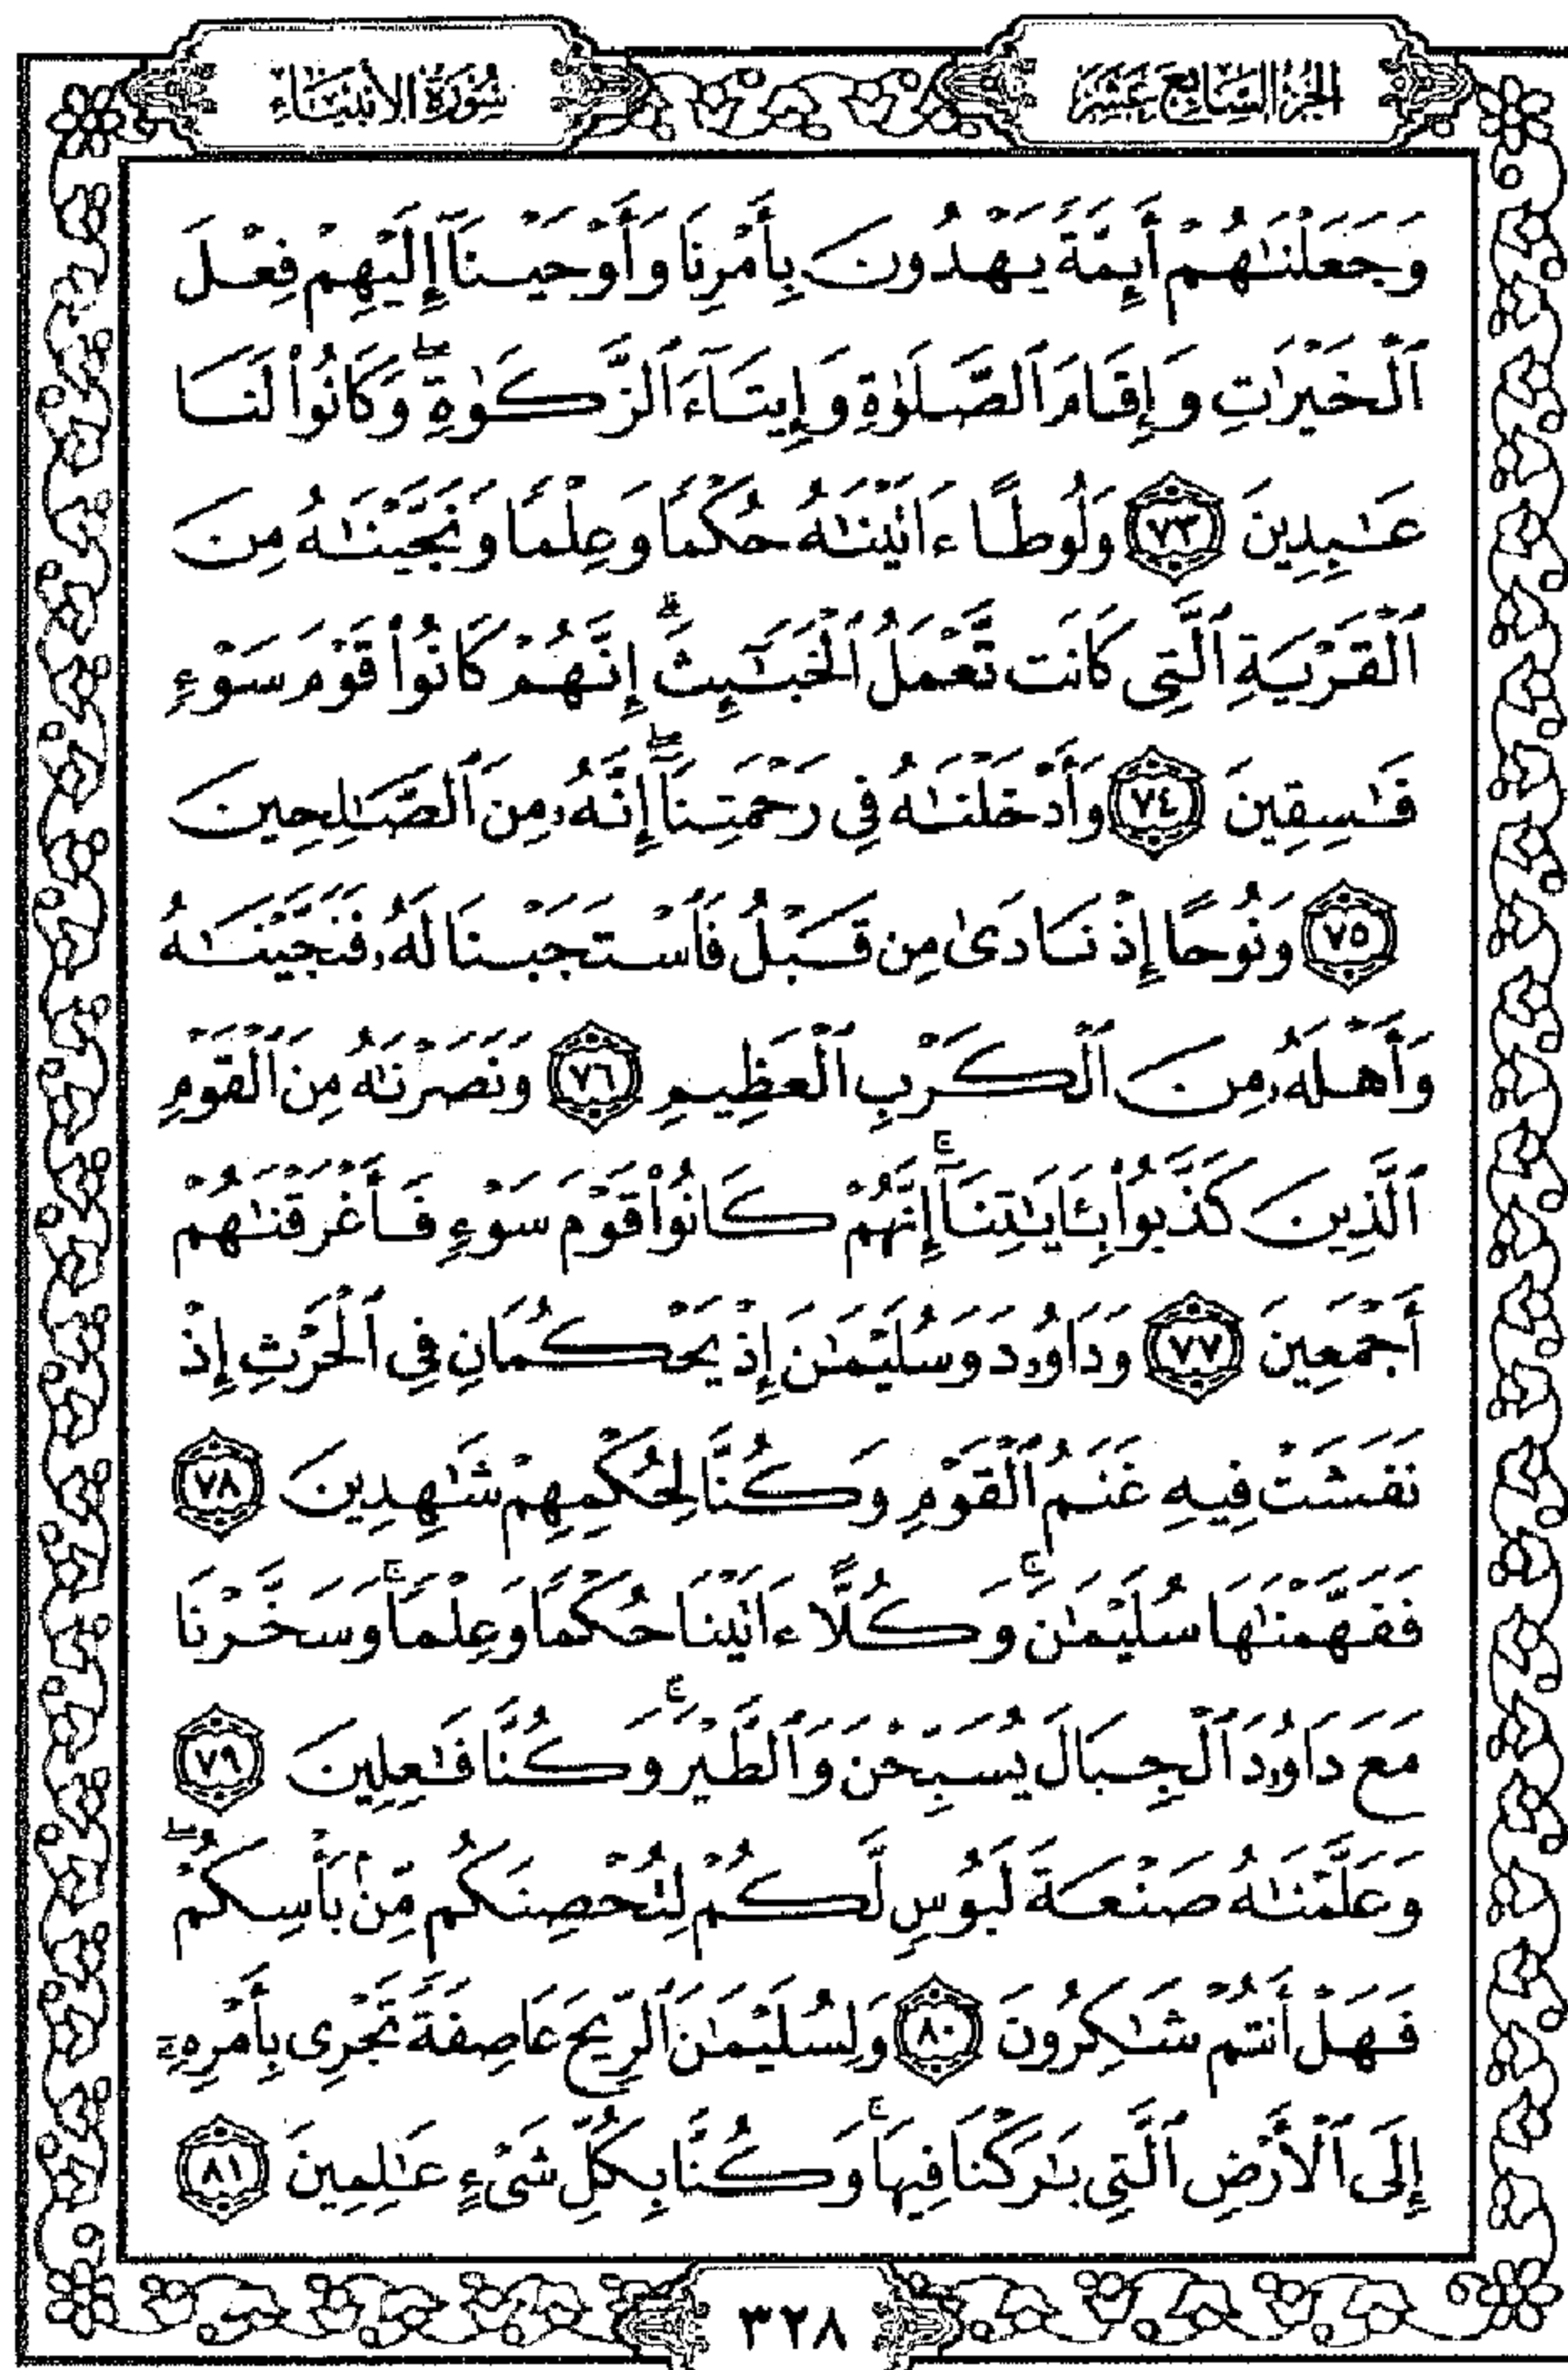 الجزء السابع عشر
سورة الأنبياء
وَجَعَلْنَٰهُمْ أَئِمَّةً يَهْدُونَ بِأَمْرِنَا وَأَوْحَيْنَآ إِلَيْهِمْ فِعْلَ
ٱلْخَيْرَٰتِ وَإِقَامَ ٱلصَّلَوٰةِ وَإِيتَآءَ ٱلزَّكَوٰةِ ۖ وَكَانُوا۟ لَنَا
عَٰبِدِينَ ﴿٧٣﴾ وَلُوطًا ءَاتَيْنَٰهُ حُكْمًا وَعِلْمًا وَنَجَّيْنَٰهُ مِنَ
ٱلْقَرْيَةِ ٱلَّتِى كَانَت تَّعْمَلُ ٱلْخَبَٰٓئِثَ ۗ إِنَّهُمْ كَانُوا۟ قَوْمَ سَوْءٍ
فَٰسِقِينَ ﴿٧٤﴾ وَأَدْخَلْنَٰهُ فِى رَحْمَتِنَآ ۖ إِنَّهُۥ مِنَ ٱلصَّٰلِحِينَ
﴿٧٥﴾ وَنُوحًا إِذْ نَادَىٰ مِن قَبْلُ فَٱسْتَجَبْنَا لَهُۥ فَنَجَّيْنَٰهُ
وَأَهْلَهُۥ مِنَ ٱلْكَرْبِ ٱلْعَظِيمِ ﴿٧٦﴾ وَنَصَرْنَٰهُ مِنَ ٱلْقَوْمِ
ٱلَّذِينَ كَذَّبُوا۟ بِـَٔايَٰتِنَآ ۚ إِنَّهُمْ كَانُوا۟ قَوْمَ سَوْءٍ فَأَغْرَقْنَٰهُمْ
أَجْمَعِينَ ﴿٧٧﴾ وَدَاوُۥدَ وَسُلَيْمَٰنَ إِذْ يَحْكُمَانِ فِى ٱلْحَرْثِ إِذْ
نَفَشَتْ فِيهِ غَنَمُ ٱلْقَوْمِ وَكُنَّا لِحُكْمِهِمْ شَٰهِدِينَ ﴿٧٨﴾
فَفَهَّمْنَٰهَا سُلَيْمَٰنَ ۚ وَكُلًّا ءَاتَيْنَا حُكْمًا وَعِلْمًا ۚ وَسَخَّرْنَا
مَعَ دَاوُۥدَ ٱلْجِبَالَ يُسَبِّحْنَ وَٱلطَّيْرَ ۚ وَكُنَّا فَٰعِلِينَ ﴿٧٩﴾
وَعَلَّمْنَٰهُ صَنْعَةَ لَبُوسٍ لَّكُمْ لِتُحْصِنَكُم مِّنۢ بَأْسِكُمْ ۖ
فَهَلْ أَنتُمْ شَٰكِرُونَ ﴿٨٠﴾ وَلِسُلَيْمَٰنَ ٱلرِّيحَ عَاصِفَةً تَجْرِى بِأَمْرِهِۦٓ
إِلَى ٱلْأَرْضِ ٱلَّتِى بَٰرَكْنَا فِيهَا ۚ وَكُنَّا بِكُلِّ شَىْءٍ عَٰلِمِينَ ﴿٨١﴾
٣٢٨